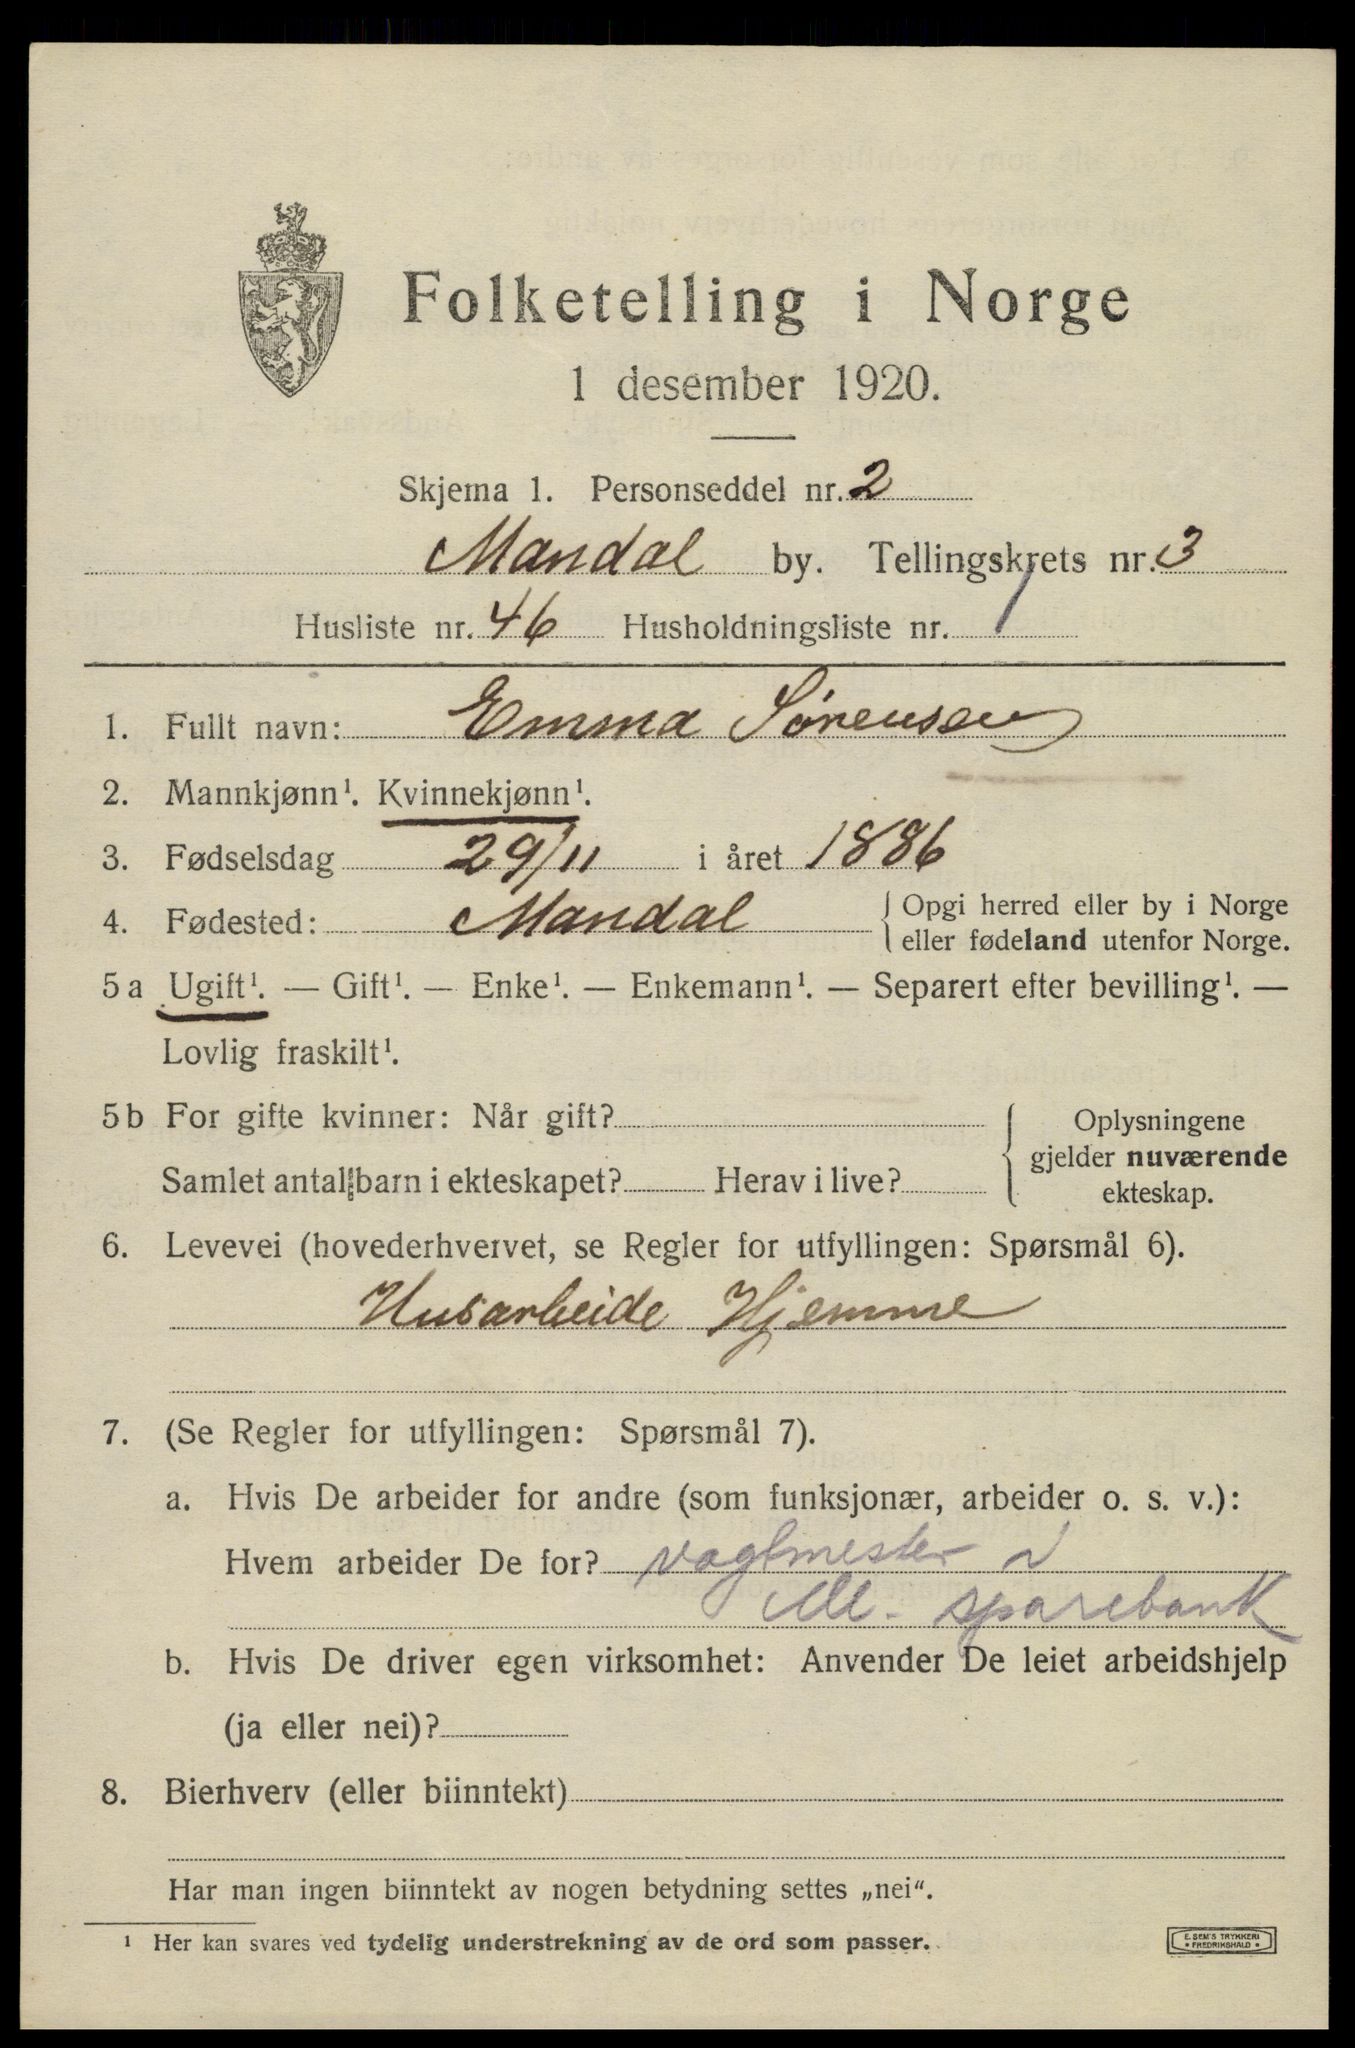 Folketelling i Norge
1 desember 1920.
Skjema 1. Personseddel nr. 2
Mandal by. Tellingskrets nr. 3
Husliste nr. 46 Husholdningsliste nr. 1
1. Fullt navn: Emma Sørensen
2. Mannkjønn¹. Kvinnekjønn¹.
3. Fødselsdag 29/11 i året 1886
4. Fødested: Mandal { Opgi herred eller by i Norge
eller fødeland utenfor Norge.
5 a Ugift¹. — Gift¹. — Enke¹. — Enkemann¹. — Separert efter bevilling¹. —
Lovlig fraskilt¹.
5 b For gifte kvinner: Når gift?
Samlet antal barn i ekteskapet? Herav i live?
{ Oplysningene
gjelder nuværende
ekteskap.
6. Levevei (hovederhvervet, se Regler for utfyllingen: Spørsmål 6).
Husarbeide Hjemme
7. (Se Regler for utfyllingen: Spørsmål 7).
a. Hvis De arbeider for andre (som funksjonær, arbeider o. s. v.):
Hvem arbeider De for? vagtmester i
M. sparebank
b. Hvis De driver egen virksomhet: Anvender De leiet arbeidshjelp
(ja eller nei)?
8. Bierhverv (eller biinntekt)
Har man ingen biinntekt av nogen betydning settes „nei“.
¹ Her kan svares ved tydelig understrekning av de ord som passer.
E. SEM'S TRYKKERI
• FREDRIKSHALD •